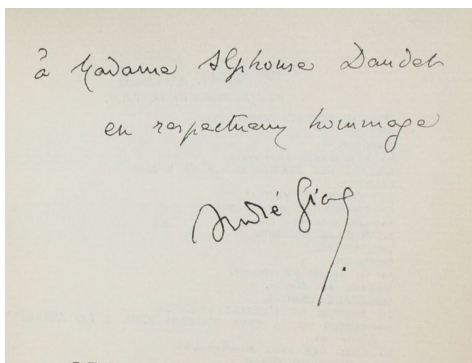 à Madame Alphonse Daudet
en respectueux hommage
André Gide